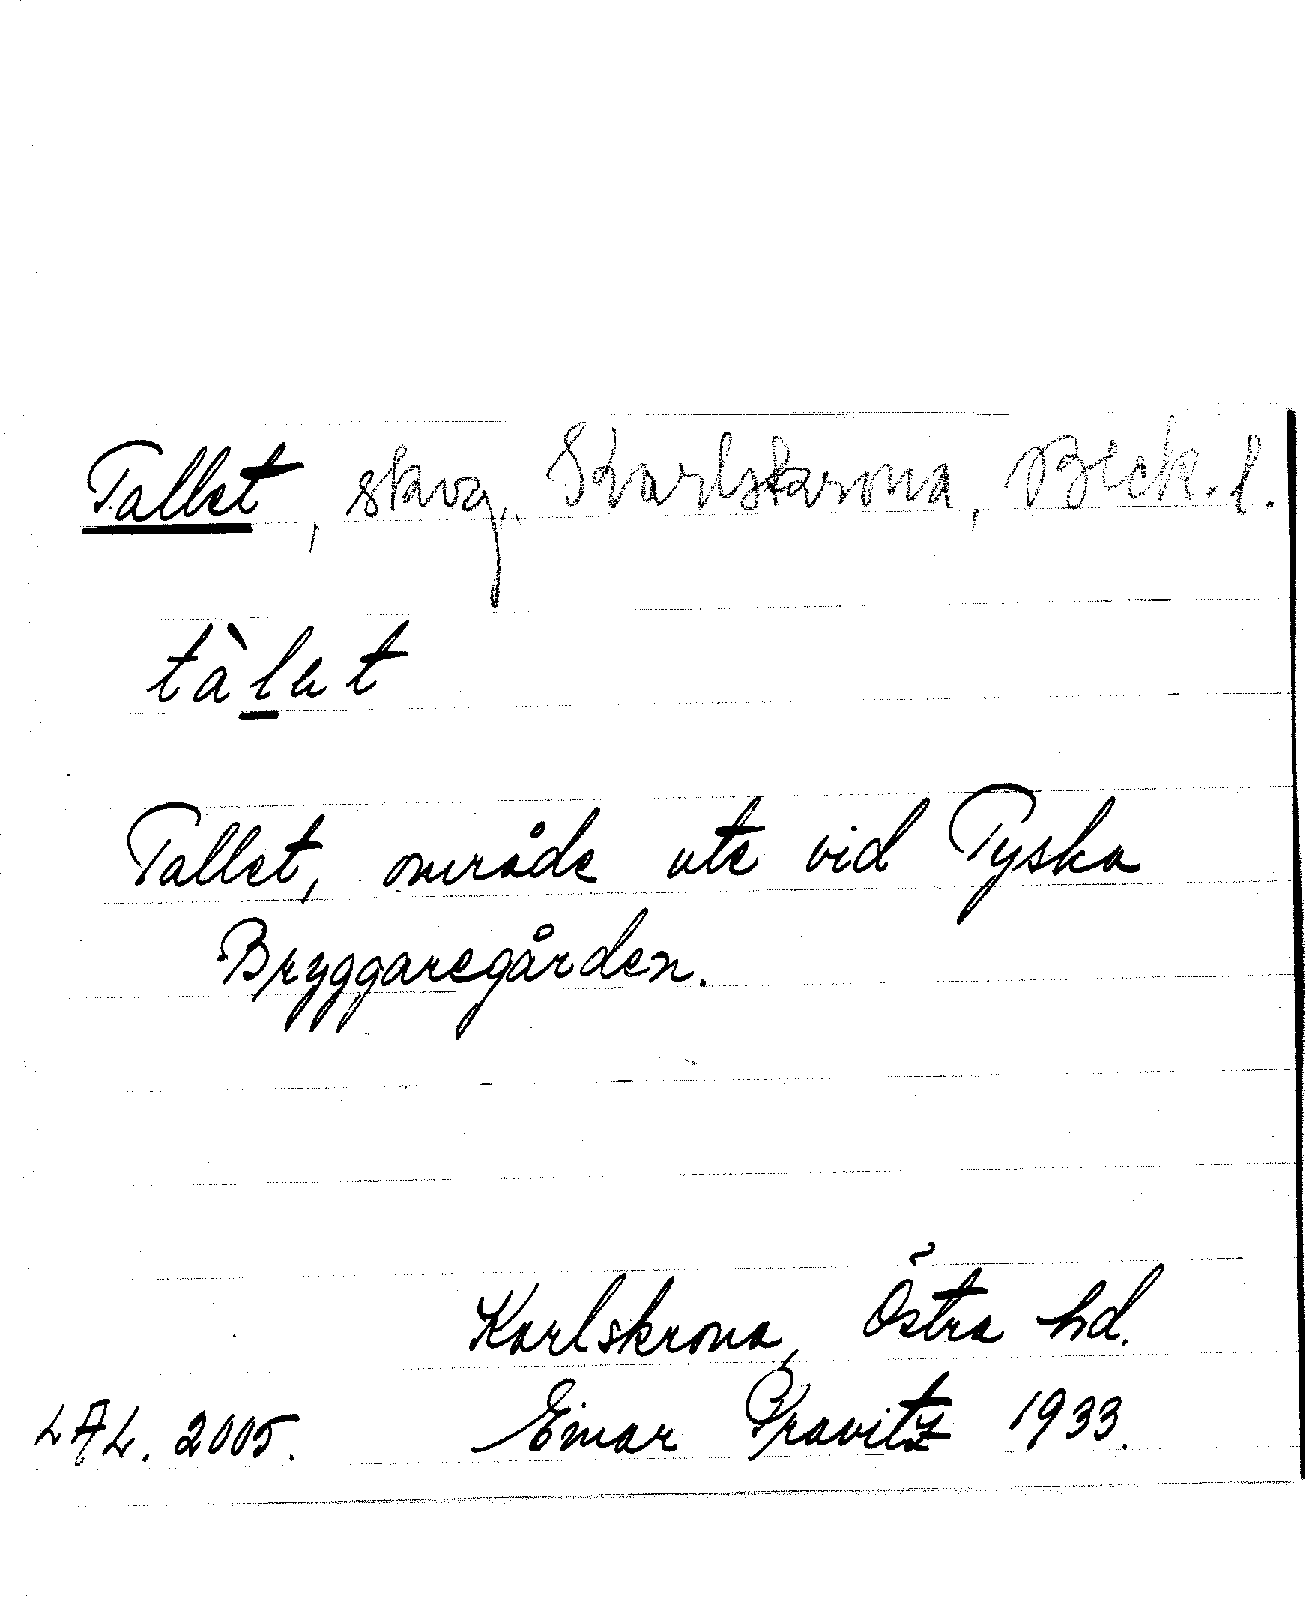 Tallet, skog, Karlskrona, Bleck. l.
tàlet
Tallet, område ute vid Tyska
Bryggaregården.
Karlskrona, Östra hd.
LAL. 2005. Einar Pravitz 1933.